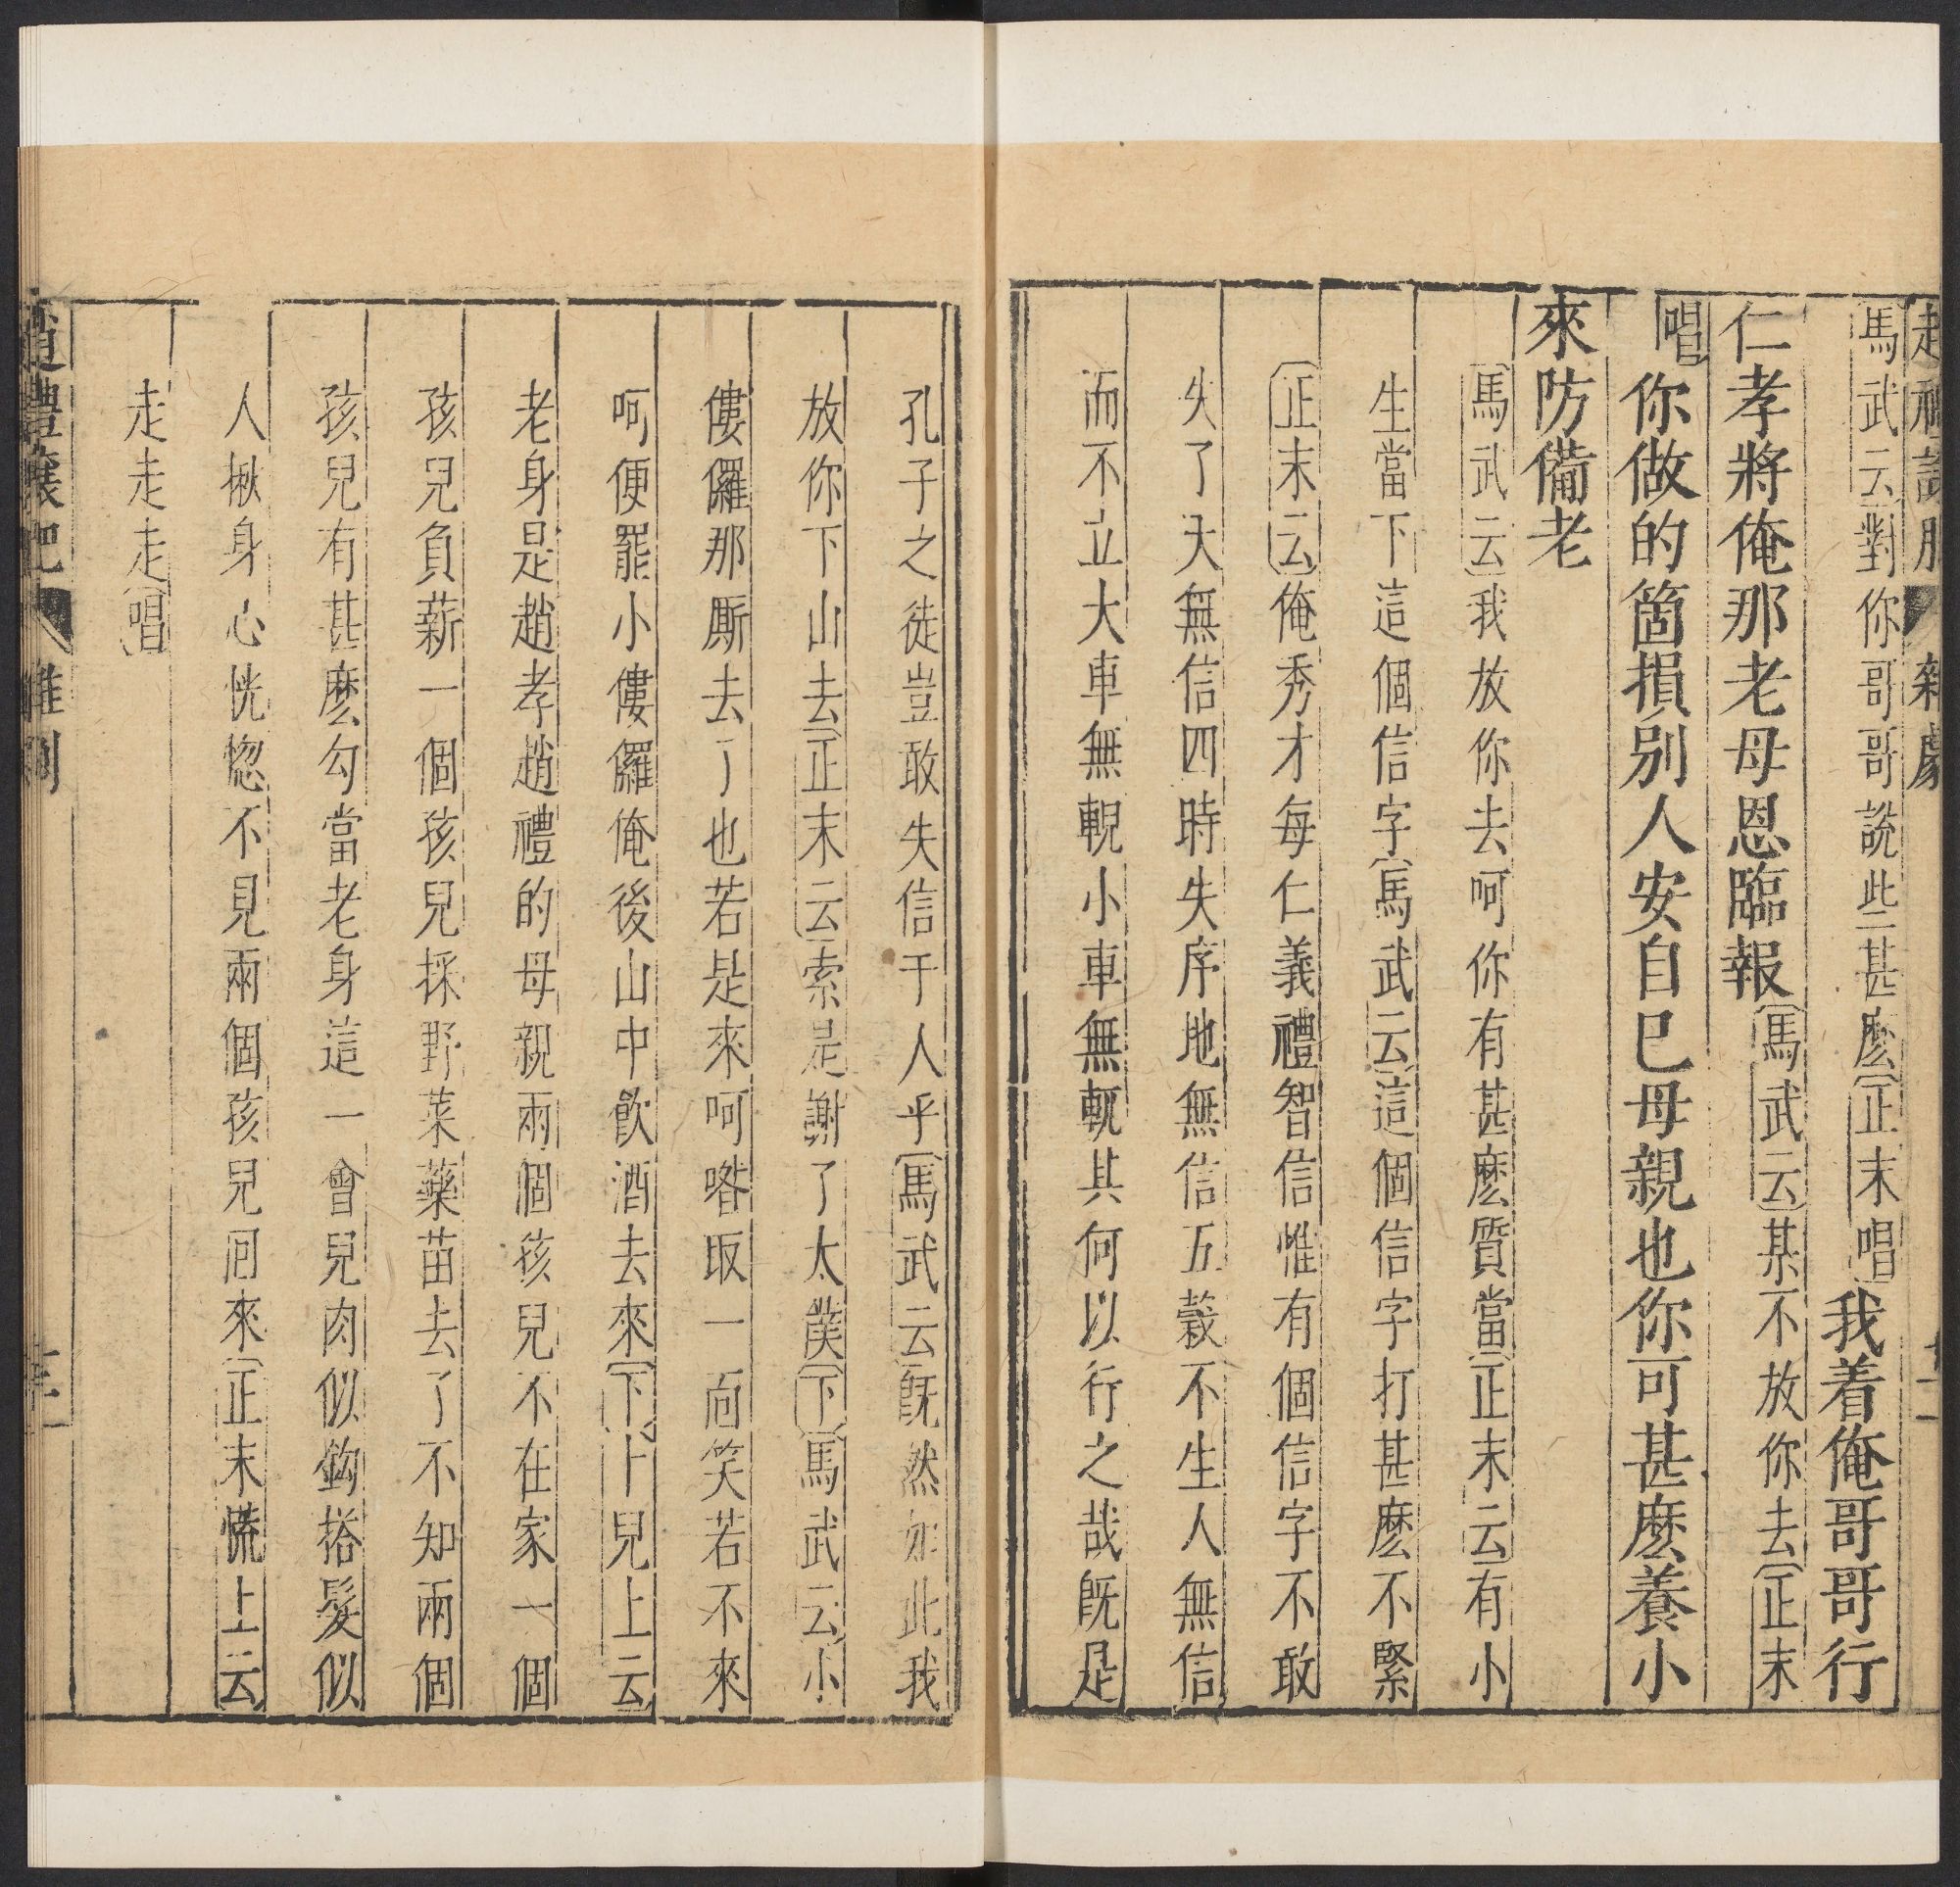 雜劇
馬武云對你哥哥說些甚麽正末唱我着俺哥哥行
仁孝將俺那老母恩臨報馬武云某不放你去正末
唱你做的箇損別人安自己母親也你可甚麽養小
來防備老
馬武云我放你去呵你有甚麽質當正末云有小
生當下這個信字馬武云這個信字打甚麽不緊
正末云俺秀才每仁義禮智信惟有個信字不敢
失了天無信四時失序地無信五穀不生人無信
而不立大車無輗小車無軏其何以行之哉旣是
孔子之徒豈敢失信于人乎馬武云旣然如此我
放你下山去正末云索是謝了太僕下馬武云小
僂儸那厮去了也若是來呵喒取一面笑若不來
呵便罷小僂儸俺後山中飮酒去來下卜兒上云
老身是趙孝趙禮的母親兩個孩兒不在家一個
孩兒負薪一個孩兒採野菜藥苗去了不知兩個
孩兒有甚麽勾當老身這一會兒肉似鈎搭髮似
人揪身心恍惚不見兩個孩兒囘來正末慌上云
走走走唱
趙禮讓肥 雜劇